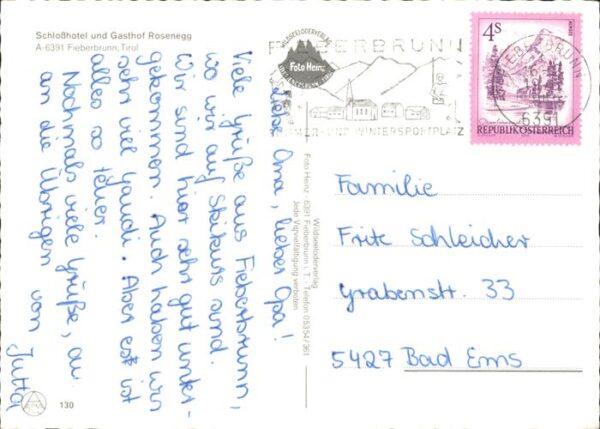 Schloßhotel und Gasthof Rosenegg
A-6391 Fieberbrunn, Tirol
Liebe Oma, lieber Opa!
Viele Grüße aus Fieberbrunn,
wo wir auf Skikurs sind.
Wir sind hier sehr gut unter-
gekommen. Auch haben wir
sehr viel Gaudi. Aber es ist
alles so teuer.
Nochmals viele Grüße, au
an die Übrigen von Jutta
130
Wildseeloderverlag
Foto Heinz · 6391 Fieberbrunn i. T. · Telefon 05354/361
Jede Vervielfältigung verboten
WILDSEELODERVERLAG
Foto Heinz
FIEBERBRUNN
SOMMER- UND WINTERSPORTPLATZ
FIEBERBRUNN
6391
4 S
REPUBLIK ÖSTERREICH
Familie
Fritz Schleicher
Grabenstr. 33
5427 Bad Ems